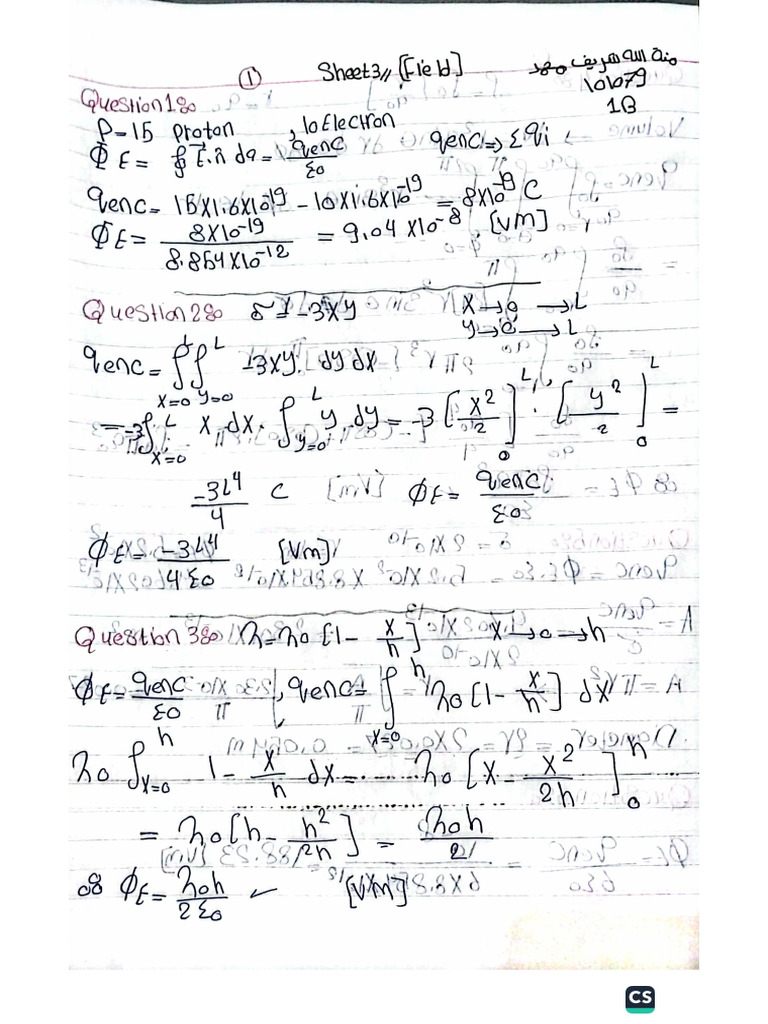 ① Sheet3// [Field] منة الله شريف محمد
101079
1B
Question 1:
P=15 proton , 10 Electron qenc => Σqi
ΦE = ∮ E⃗.n̂ da = qenc/ε0
qenc = 15x1.6x10^-19 - 10x1.6x10^-19 = 8x10^-19 C
ΦE = 8x10^-19 / 8.854x10^-12 = 9.04x10^-8 [Vm]
Question 2: δ = -3xy x→0 → L
y→0 → L
qenc = ∫_{x=0}^{L} ∫_{y=0}^{L} -3xy. dy dx
= -3∫_{x=0}^{L} x dx. ∫_{y=0}^{L} y. dy = -3 [x²/2]_0^L . [y²/2]_0^L =
-3L⁴/4 C ΦE = qenc/ε0
ΦE = -3L⁴/4ε0 [Vm]
Question 3: λ=λ0 [1 - x/h] x→0→h
ΦE = qenc/ε0 , qenc = ∫_{x=0}^{h} λ0 [1 - x/h] dx
λ0 ∫_{x=0}^{h} 1 - x/h dx = λ0 [x - x²/2h]_0^h
= λ0 [h - h²/2h] = λ0h/2
∴ ΦE = λ0h/2ε0 ✓ [Vm]
CS